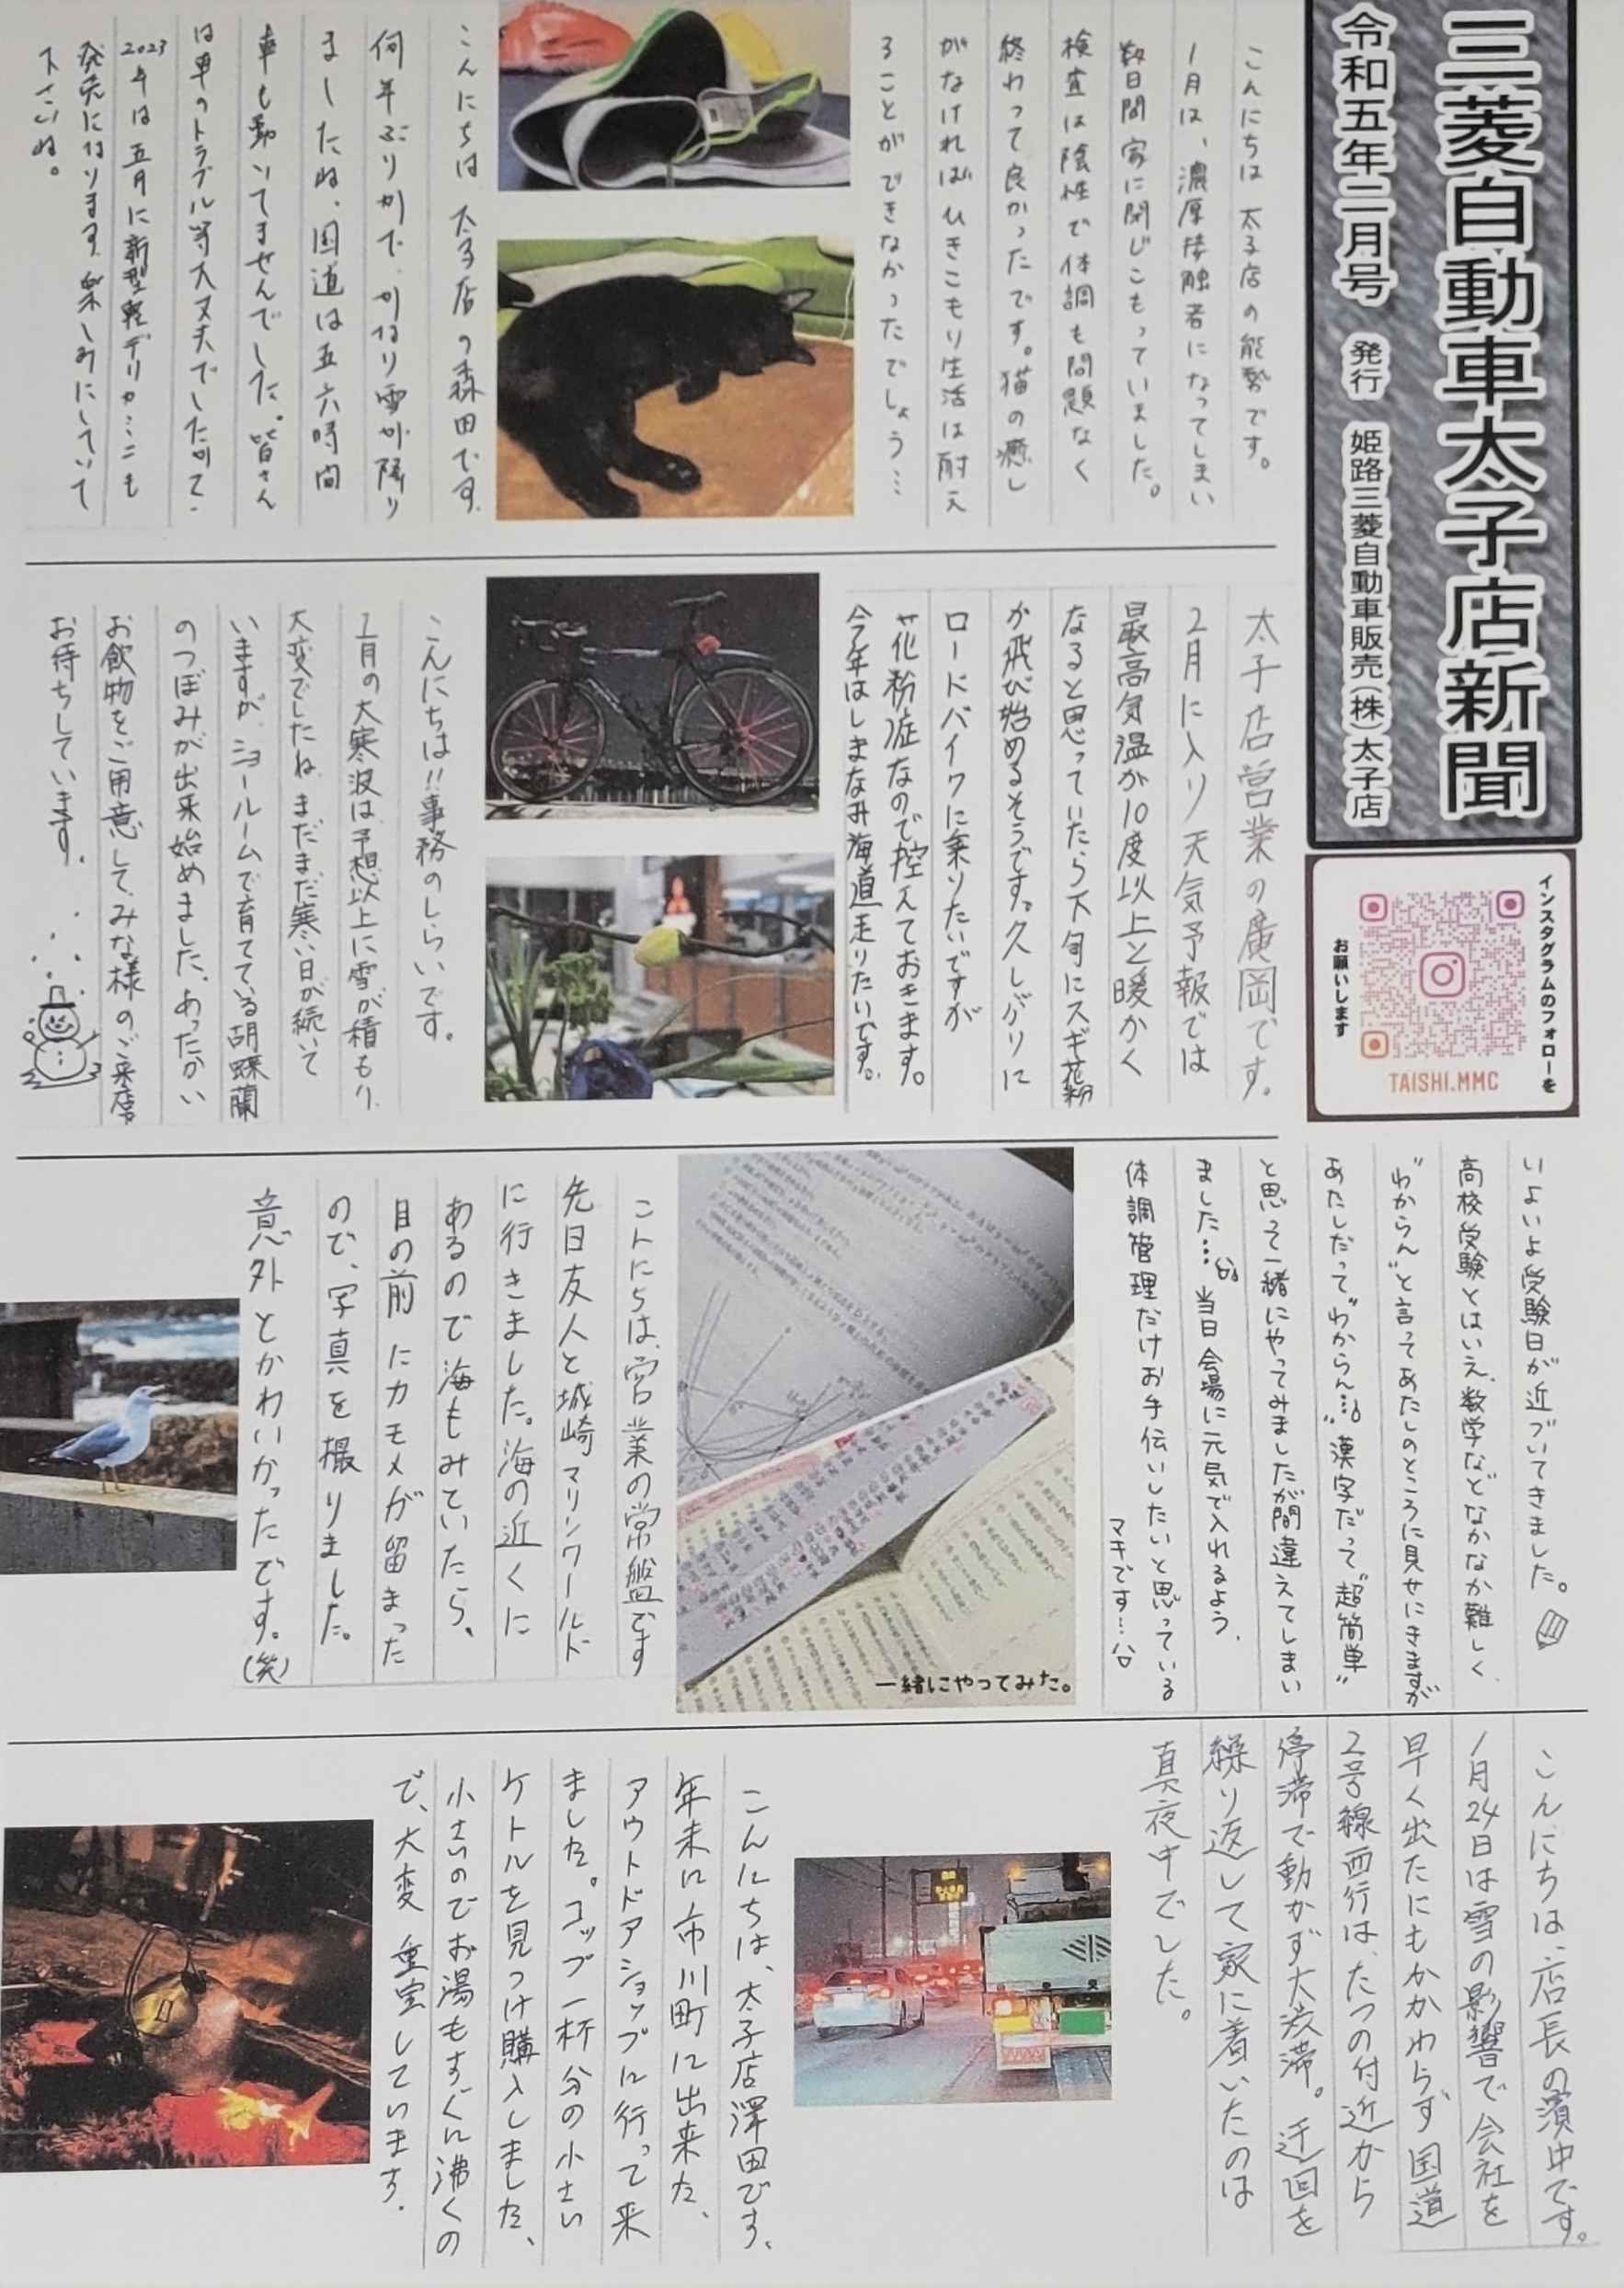 三菱自動車太子店新聞
令和五年二月号 発行 姫路三菱自動車販売(株)太子店
インスタグラムのフォローを
お願いします
TAISHI.MMC
こんにちは 太子店の能勢です。
1月は、濃厚接触者になってしまい
数日間家に閉じこもっていました。
検査は陰性で体調も問題なく
終わって良かったです。猫の癒し
がなければひきこもり生活は耐え
ることができなかったでしょう…
こんにちは 太子店の森田です。
何年ぶりかで、かなり雪が降り
ましたね、国道は五六時間
車も動いてませんでした。皆さん
は車のトラブル等大丈夫でしたか?
2023年は五月に新型軽デリカミニも
発売になります。楽しみにしていて
下さいね。
太子店営業の廣岡です。
2月に入り天気予報では
最高気温が10度以上と暖かく
なると思っていたら下旬にスギ花粉
が飛び始めるそうです。久しぶりに
ロードバイクに乗りたいですが
花粉症なので控えておきます。
今年はしまなみ海道走りたいです。
こんにちは!!事務のしらいです。
1月の大寒波は予想以上に雪が積もり、
大変でしたね。まだまだ寒い日が続いて
いますが、ショールームで育てている胡蝶蘭
のつぼみが出来始めました。あったかい
お飲物をご用意して、みな様のご来店
お待ちしています。
いよいよ受験日が近づいてきました。
高校受験とはいえ、数学などなかなか難しく
"わからん"と言ってあたしのところに見せにきますが
あたしだって"わからん…"漢字だって"超簡単"
と思って一緒にやってみましたが間違えてしまい
ました… 当日会場に元気で入れるよう、
体調管理だけお手伝いしたいと思っている
マキです…
一緒にやってみた。
こんにちは、営業の常盤です
先日友人と城崎マリンワールド
に行きました。海の近くに
あるので海もみていたら、
目の前にカモメが留まった
ので、写真を撮りました。
意外とかわいかったです。(笑)
こんにちは、店長の濱中です。
1月24日は雪の影響で会社を
早く出たにもかかわらず国道
2号線西行は、たつの付近から
停滞で動かず大渋滞。迂回を
繰り返して家に着いたのは
真夜中でした。
こんにちは、太子店澤田です。
年末に市川町に出来た、
アウトドアショップに行って来
ました。コップ一杯分の小さい
ケトルを見つけ購入しました、
小さいのでお湯もすぐに沸くの
で、大変 重宝しています。